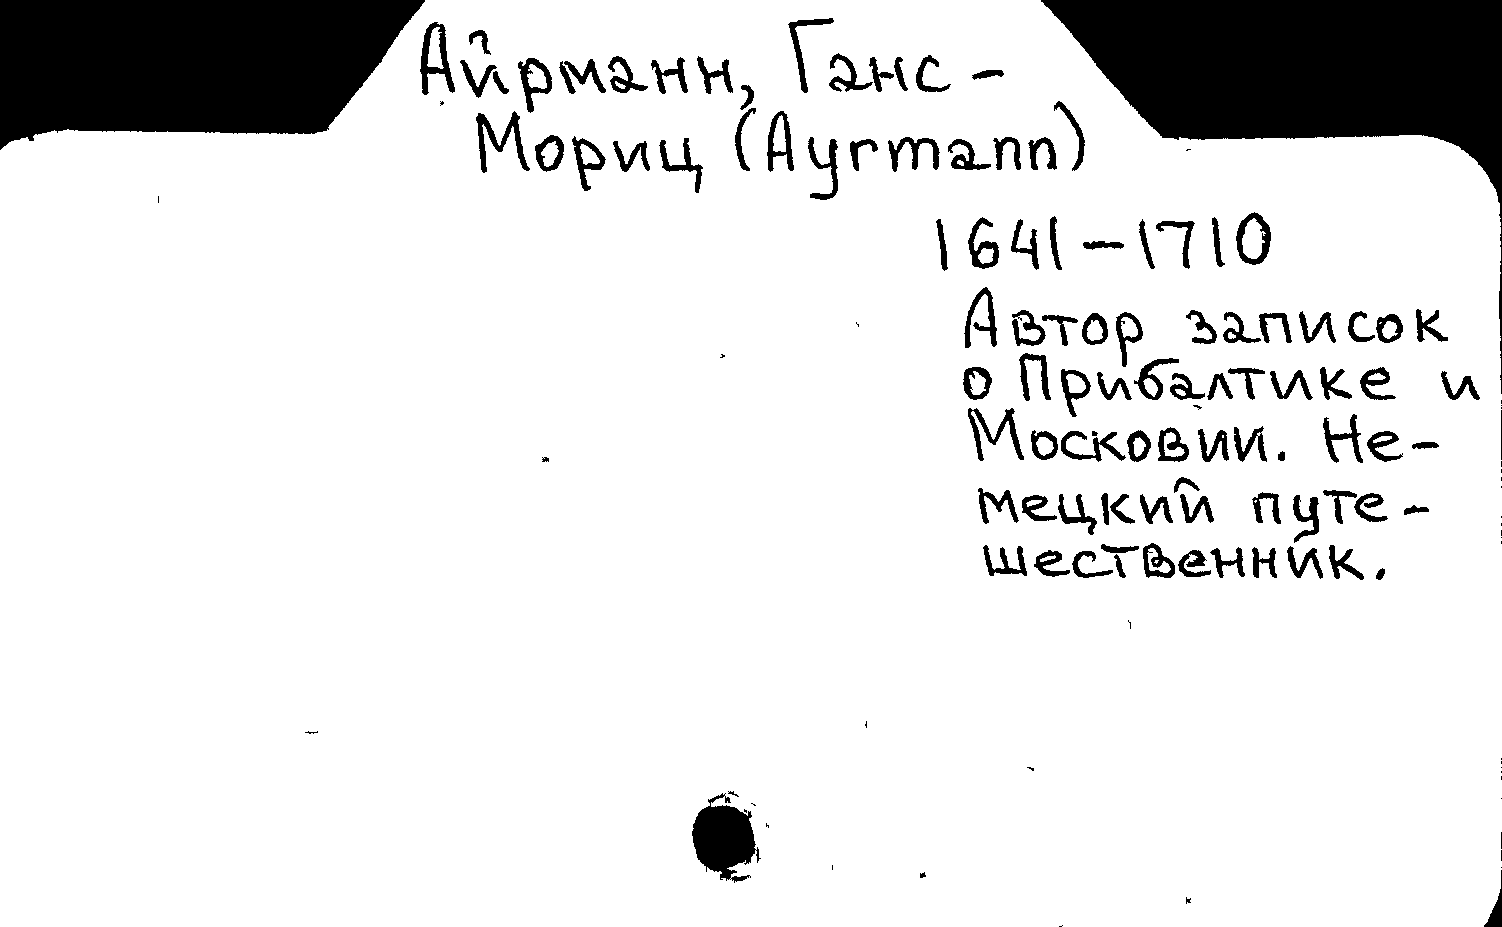 Айрманн, Ганс-
Мориц (Ayrmann)
1641-1710
Автор записок
о Прибалтике и
Московии. Не-
мецкий путе-
шественник.